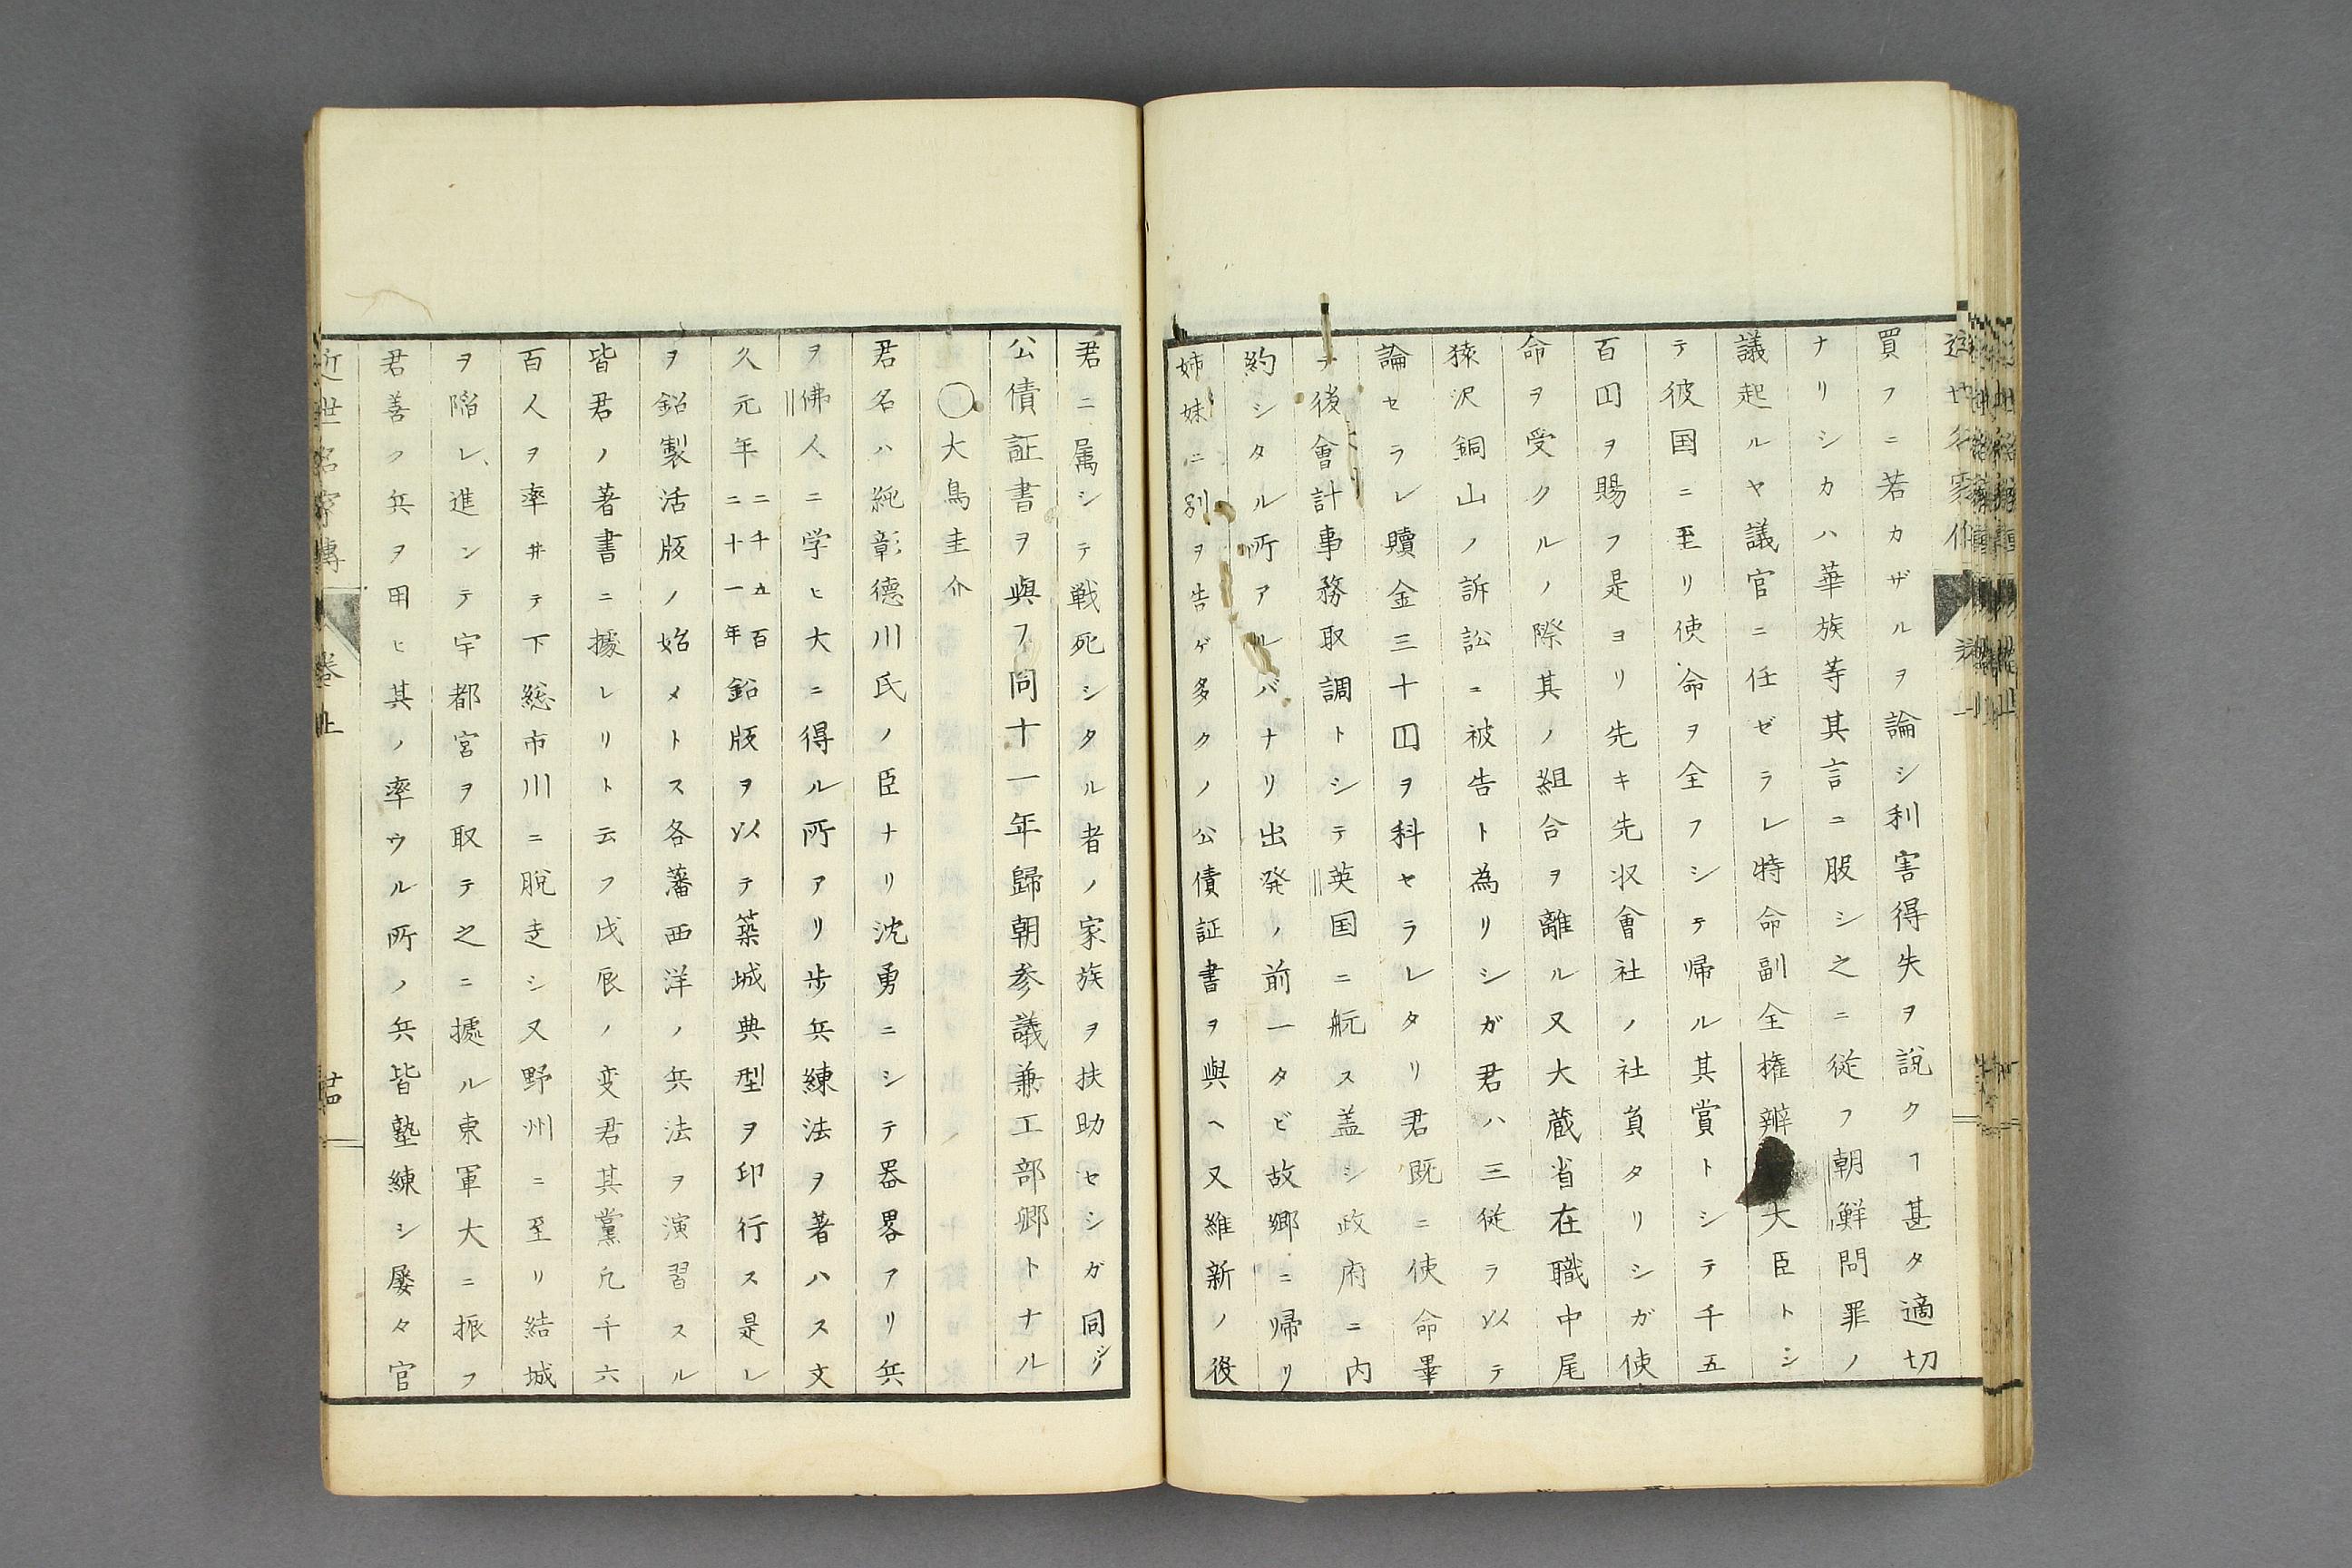 買フニ若カザルヲ論シ利害得失ヲ説クヿ甚タ適切
ナリシカハ華族等其言ニ服シ之ニ従フ朝鮮問罪ノ
議起ルヤ議官ニ任ゼラレ特命副全権辨大臣トシ
テ彼国ニ至リ使命ヲ全フシテ帰ル其賞トシテ千五
百囬ヲ賜フ是ヨリ先キ先収會社ノ社負タリシガ使
命ヲ受クルノ際其ノ組合ヲ離ル又大蔵省在職中尾
猿沢銅山ノ訴訟ニ被告ト為リシガ君ハ三従ラ以テ
論セラレ贖金三十囬ヲ科セラレタリ君既ニ使命畢
テ後會計事務取調トシテ英国ニ航ス盖シ政府ニ内
約シタル所アルバナリ出発ノ前一タビ故郷ニ帰リ
姉妹ニ別ヲ告ゲ多クノ公債証書ヲ與ヘ又維新ノ後
君ニ属シテ戦死シタル者ノ家族ヲ扶助セシガ同シク
公債証書ヲ與フ同十一年歸朝参議兼工部郷トナル
○大鳥圭介
君名ハ純彰德川氏ノ臣ナリ沈勇ニシテ器畧アリ兵
ヲ佛人ニ学ヒ大ニ得ル所アリ歩兵練法ヲ著ハス文
久元年二千五百二十一年鉛版ヲ以テ築城典型ヲ印行ス是レ
ヲ鉛製活版ノ始メトス各藩西洋ノ兵法ヲ演習スル
皆君ノ著書ニ據レリト云フ戊辰ノ変君其黨凡千六
百人ヲ率井テ下総市川ニ脱走シ又野州ニ至リ結城
ヲ陥レ、進ンテ宇都宮ヲ取テ之ニ據ル東軍大ニ振フ
君善ク兵ヲ用ヒ其ノ率ウル所ノ兵皆塾練シ屡々官
近世名家傳 卷上 廿四